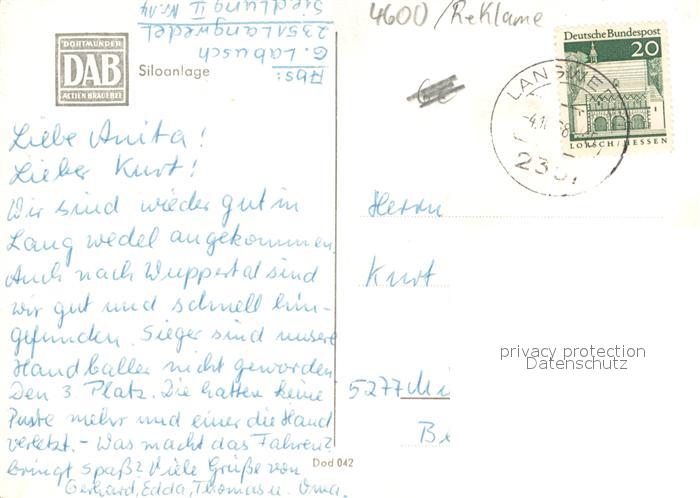 4600 / Reklame
Abs:
G. Labusch
2351 Langwedel
Siedlung II Nr. 14
DORTMUNDER
DAB
ACTIEN BRAUEREI
Siloanlage
Deutsche Bundespost
20
LORSCH / HESSEN
LANGWE
-4.1
Liebe Anita!
Lieber Kurt!
Wir sind wieder gut in
Langwedel angekommen.
Auch nach Wuppertal sind
wir gut und schnell hin-
gefunden. Sieger sind unsere
Handballer nicht geworden
Den 3. Platz. Die hatten keine
Puste mehr und einer die Hand
verletzt. - Was macht das Fahren?
bringt Spaß? Viele Grüße von
Gerhard, Edda, Thomas u. Oma.
Herrn
Kurt
5277 Mi
Be
privacy protection
Datenschutz
Dod 042